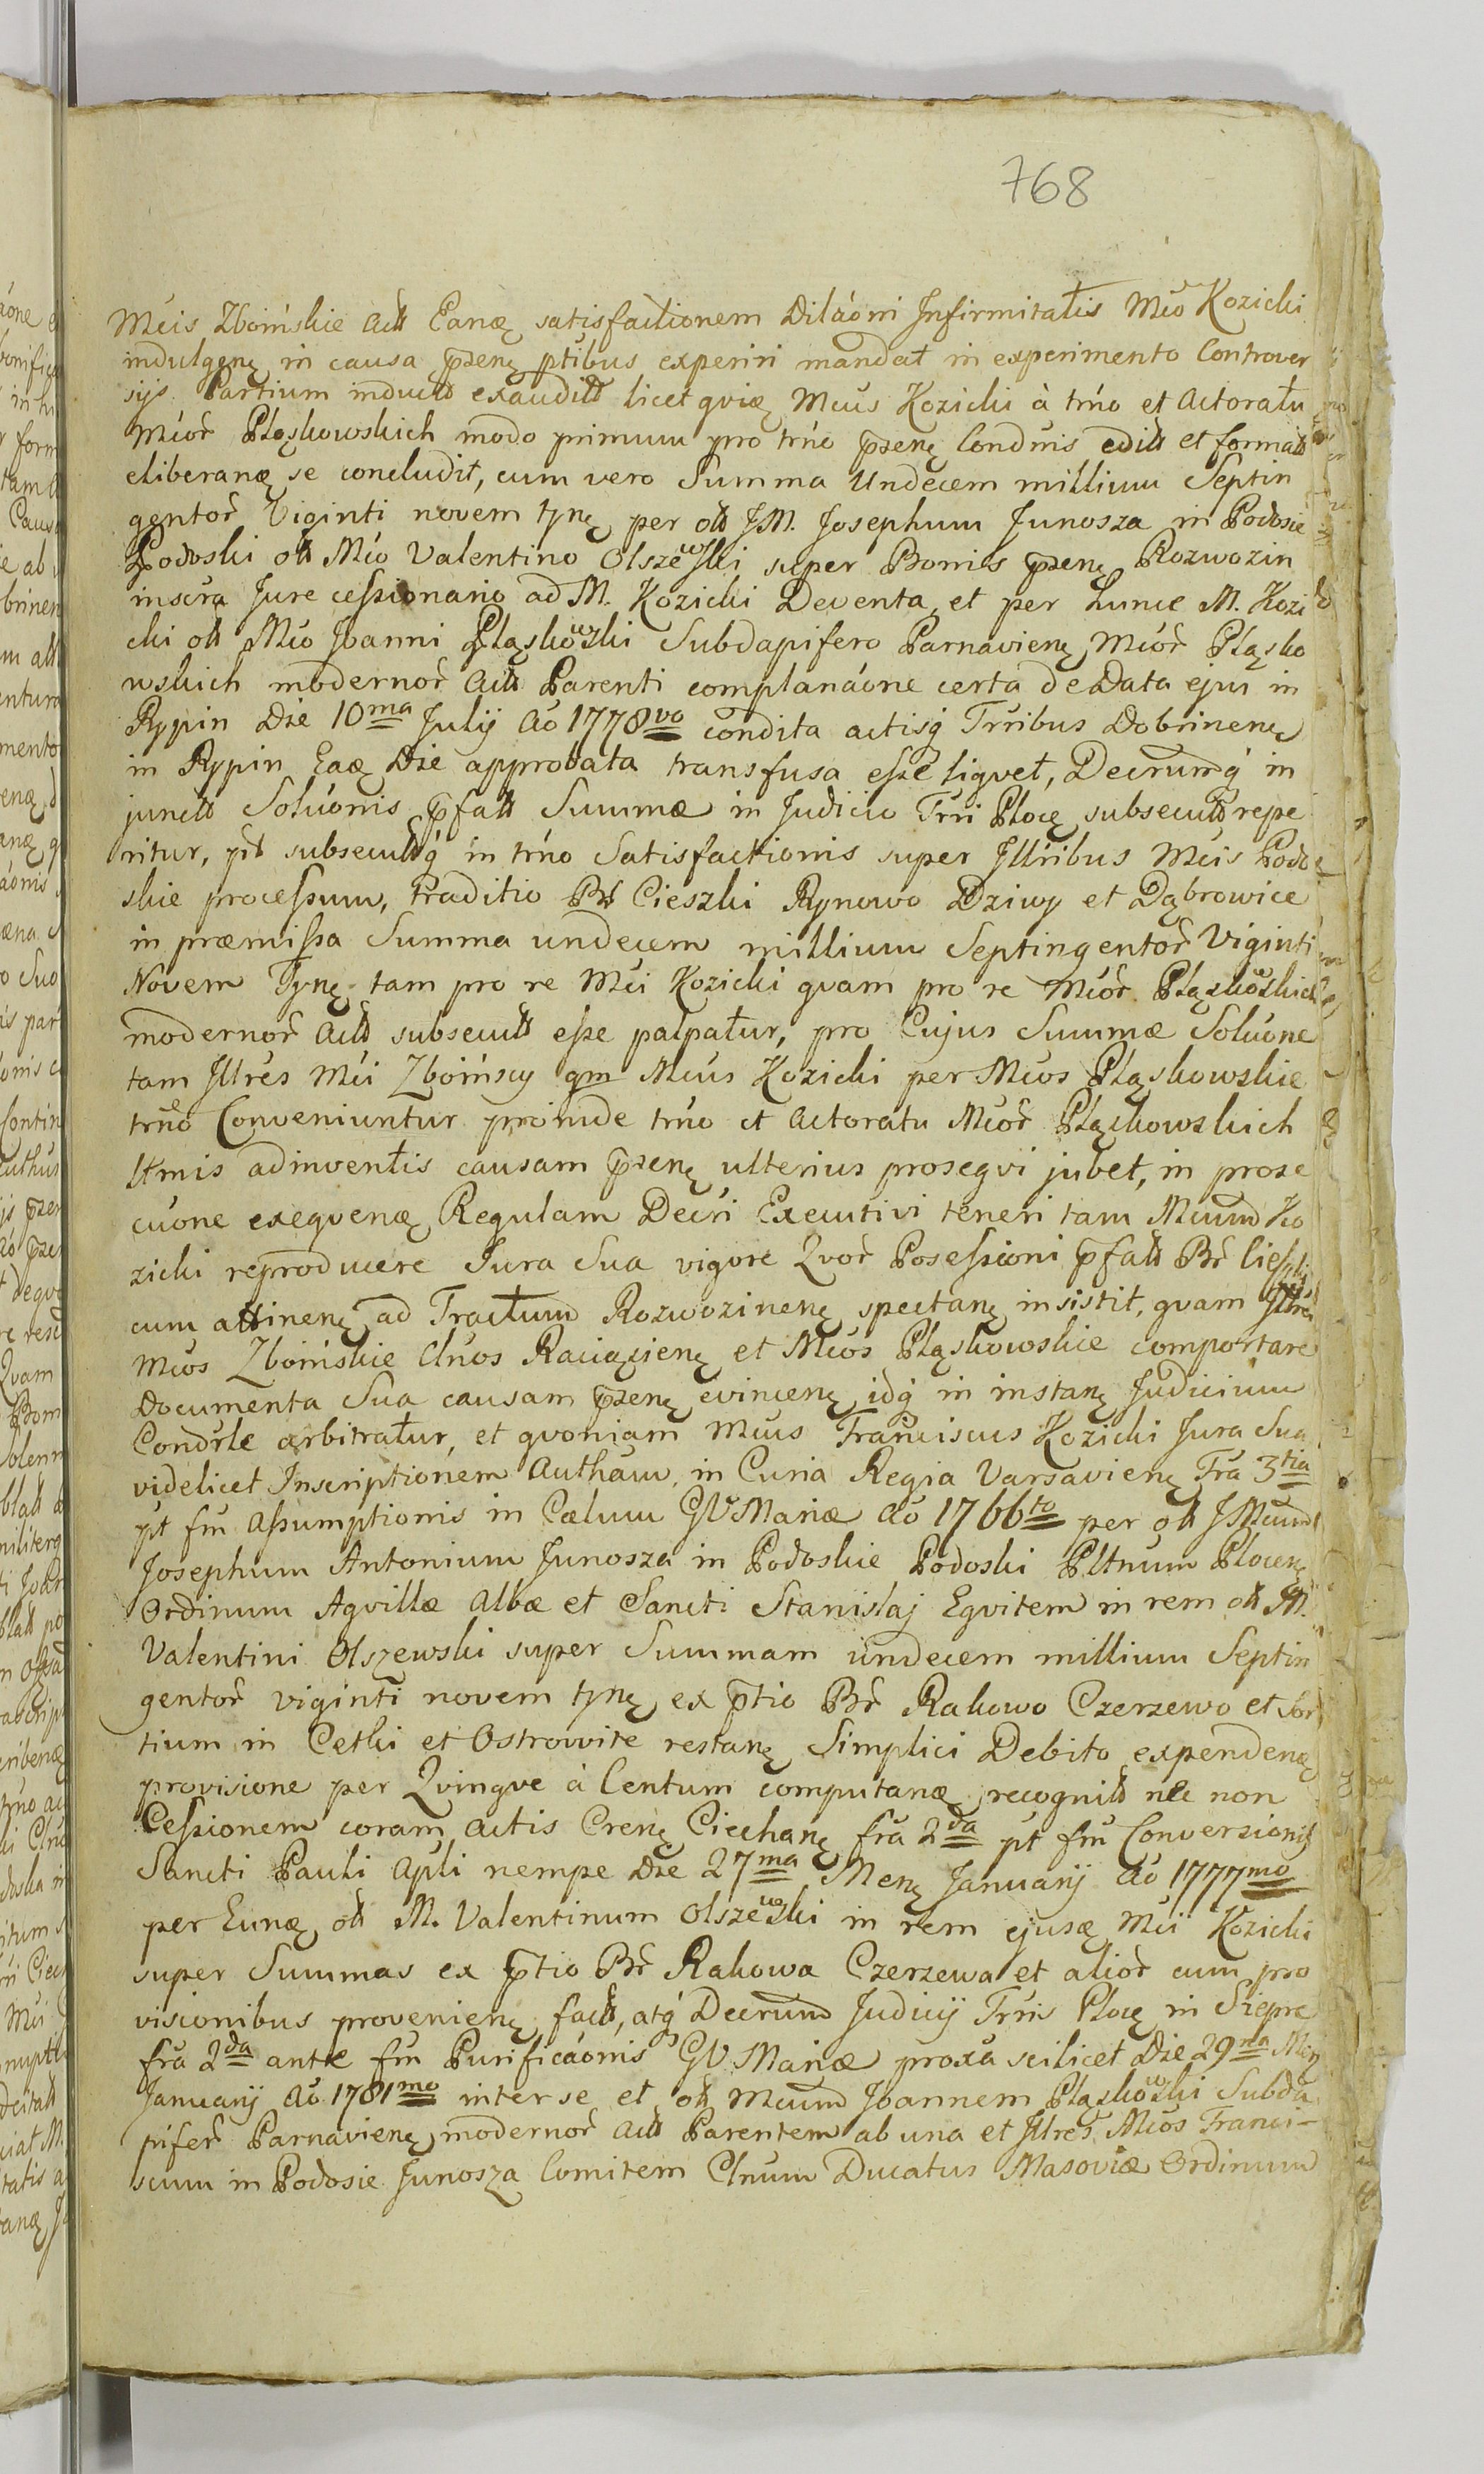 768
Mcis Zboińskie Actt Eanę satisfactionem Dilãoni Infirmitatis Mco Kozicki
indulgenę in causa p̃zenę ptibus experiri mandat in experimento Controver
sijs Partium inductt exauditt licet qviæ Mcus Kozicki à trno et Actoratu
Mcor̃ Pląskowskich modo primum pro trno p̃zenę Condnis editt et formatt
eliberanę se concludit, cum vero Summa Undecem millium Septin
gentor̃ Viginti novem tynę per ott JM. Josephum Junosza in Podosie
Podoski ott Mco Valentino Olszewski super Bonis p̃zenę Rozwozin
inscra Jure cessionario ad M. Kozicki Deventa, et per hunc M. Kozi
cki ott Mco Joanni Pląskowski Subdapifero Parnavienę, Mcor̃ Pląsko
wskich modernor̃ Actt Parenti complanãone certa de Data ejus in
Rypin Die 10ma Julij Ao 1778vo condita actisq́ Trribus Dobrinenę
in Rypin Eaę Die approbata transfusa esse liqvet, Decrumq́ in
junctt Solũonis p̃fatt Summæ in Judicio Trri Plocę subsecutt repe
ritur, ptt subsecuttq́ in trno Satisfactionis super Jllribus Mcis Podo
skie processum, traditio Br̃ Cieszki Rynowo Dziwy et Dąbrowice
in præmissa Summa undecem millium Septingentor̃ Viginti
Novem Tynę tam pro re Mci Kozicki qvam pro re Mcor̃ Pląskowskich
modernor̃ Actt subsecutt esse palpatur, pro Cujus Summæ Solũone
tam Jllres Mci Zboińscy qm Mcus Kozicki per Mcos Pląskowskie
trno Conveniuntur proinde trno et Actoratu Mcor̃ Pląskowskich
lttmis adinventis causam p̃zenę ulterius proseqvi jubet, in prose
cũone exeqvenę Regulam Decri Executivi teneri tam Mcum Ko
zicki reproducere Jura Sua vigore Qvor̃ Posessioni p̃fatt Br̃ Cieszki
cum attinenę ad Tractum Rozwozinenę spectanę insistit, qvam Jllres
Mcos Zboińskie Clnos Raciążienę et Mcos Pląskowskie comportare
Documenta Sua causam p̃zenę evincenę idq́ in instanę Judicium
Condrle arbitratur, et qvoniam Mcus Franciscus Kozicki Jura Sua
videlicet Inscriptionem Autham in Curia Regia Varsavienę Fra 3tia
pt fm Assumptionis in Cælum GV Mariæ Ao 1766to per ott JMcum
Josephum Antonium Junosza in Podoskie Podoski Pltnum Plocenę
Ordinum Aqvillæ Albæ et Sancti Stanislaj Eqvitem in rem ott M.
Valentini Olszewski super Summam undecem millium Septin
gentor̃ viginti novem tynę ex p̃tio Br̃ Rakowo Czerzewo et Sor
tium in Cetki et Ostrowite restanę Simplici Debito expendenę
provisione per Qvinqve à Centum computanę recognitt nec non
Cessionem coram Actis Crenę Ciechanę fra 2da pt fm Conversionis
Sancti Pauli Apli nempe Die 27ma Menę Januarij Ao 1777mo
per Eunę ott M. Valentinum Olszewski in rem ejusę Mci Kozicki
super Summas ex p̃tio Br̃ Rakowa Czerzewa et alior̃ cum pro
visionibus provenienę factt, atq́ Decrum Judicij Trris Plocę in Siepre
fra 2da ante fm Purificãonis GV Mariæ proxa scilicet Die 29na Menę
Januarij Ao 1781mo inter se et ott Mcum Joannem Pląskowski Subda
pifer̃ Parnavienę modernor̃ Actt Parentem ab una et Jllres Mcos Franci-
scum in Podosie Junosza Comitem Clnum Ducatus Masoviæ Ordinum